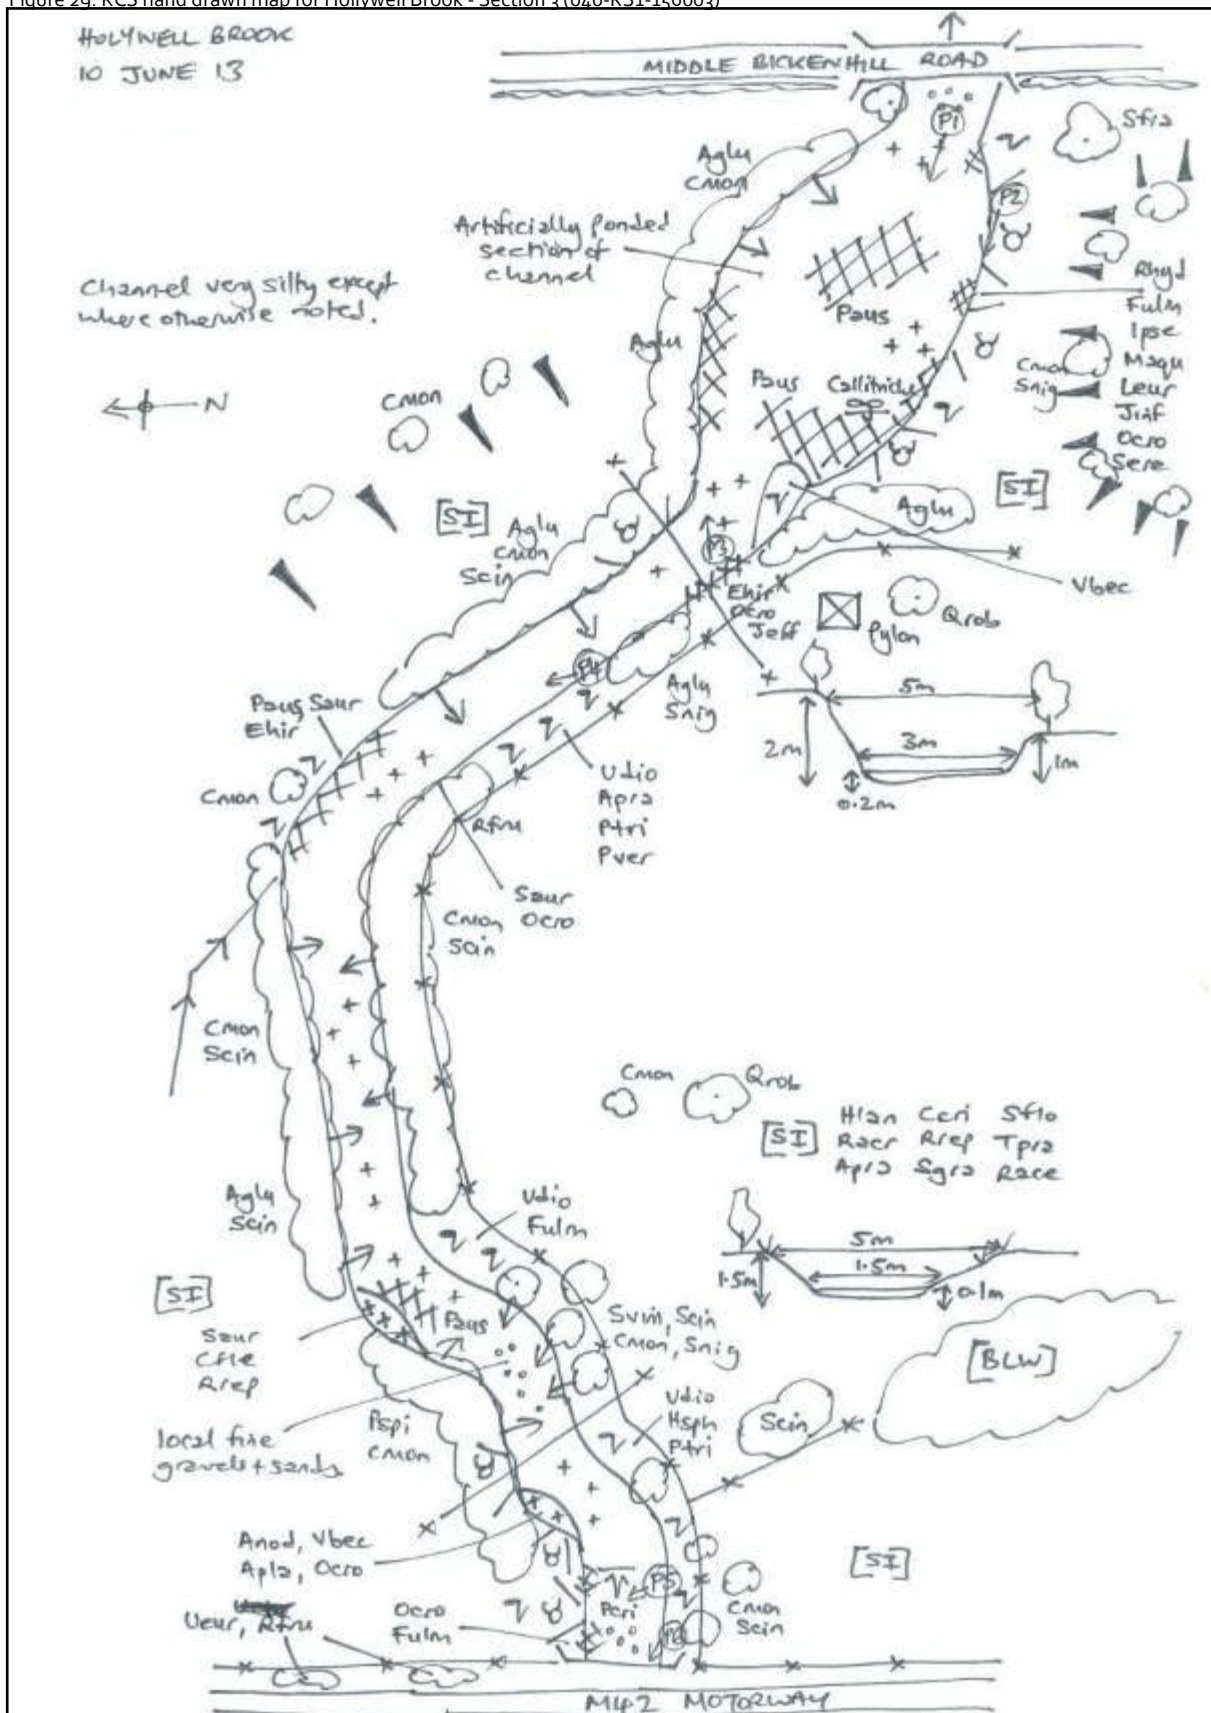 Figure 29: RCS hand drawn map for Hollywell Brook - Section 3 (040-RS1-156003)
HOLYWELL BROOK
10 JUNE 13
MIDDLE BICKENHILL ROAD
P1
Sfra
Aglu
Cmon
P2
Artificially Ponded
section of
channel
Channel very silty except
where otherwise noted.
Rhyd
Fulm
Ipse
Maqu
Leur
Jinf
Ocro
Sere
Paus
Aglu
Cmon
Snig
Paus
Callitriche
N
Cmon
[SI]
[SI]
Aglu
Aglu
Cmon
Scin
P3
Vbec
Ehir
Ocro
Jeff
Pylon
Qrob
P4
Aglu
Snig
5m
3m
2m
1m
0.2m
Paus Saur
Ehir
Cmon
Udio
Apra
Ptri
Pver
Rfru
Saur
Ocro
Cmon
Scin
Cmon
Scin
Cmon
Qrob
[SI]
Hlan Ccri Sflo
Racr Rrep Tpra
Apra Sgra Race
Aglu
Scin
Udio
Fulm
5m
1.5m
1.5m
0.1m
[SI]
Paus
Saur
Cfle
Rrep
Svim, Scin
Cmon, Snig
[BLW]
local fine
gravels + sands
Pspi
Cmon
Udio
Hsph
Ptri
Scin
Anod, Vbec
Apla, Ocro
[SI]
P5
Ueur, Rfru
Ocro
Fulm
Pcri
Cmon
Scin
M42 MOTORWAY